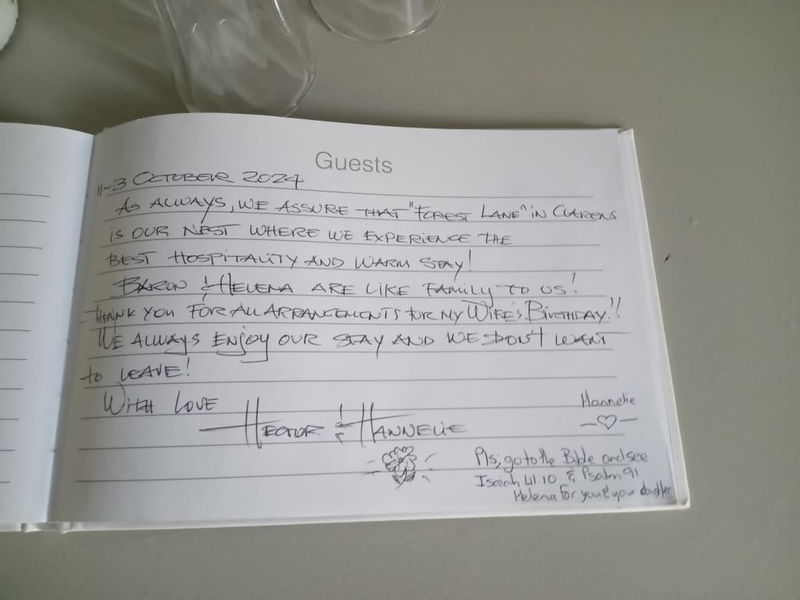 Guests
11-13 OCTOBER 2024
AS ALWAYS, WE ASSURE THAT "FOREST LANE" IN CLARENS
IS OUR NEST WHERE WE EXPERIENCE THE
BEST HOSPITALITY AND WARM STAY!
BARON & HELENA ARE LIKE FAMILY TO US!
THANK YOU FOR ALL ARRANGEMENTS FOR MY WIFE'S BIRTHDAY!!
WE ALWAYS ENJOY OUR STAY AND WE DON'T WANT
TO LEAVE!
WITH LOVE
HECTOR & HANNELIE
Hannelie
Pls, go to the Bible and see
Isaiah 41:10 & Psalm 91
Helena for you & your daughter